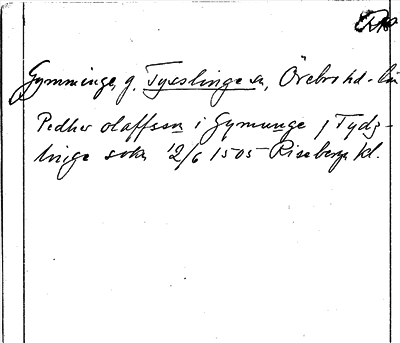 Gymminge, g. Tysslinge sn, Örebro hd.
Pedher olaffssn i Gymunge j Tydz-
linge sokn 12/6 1505 Riseberga kl.